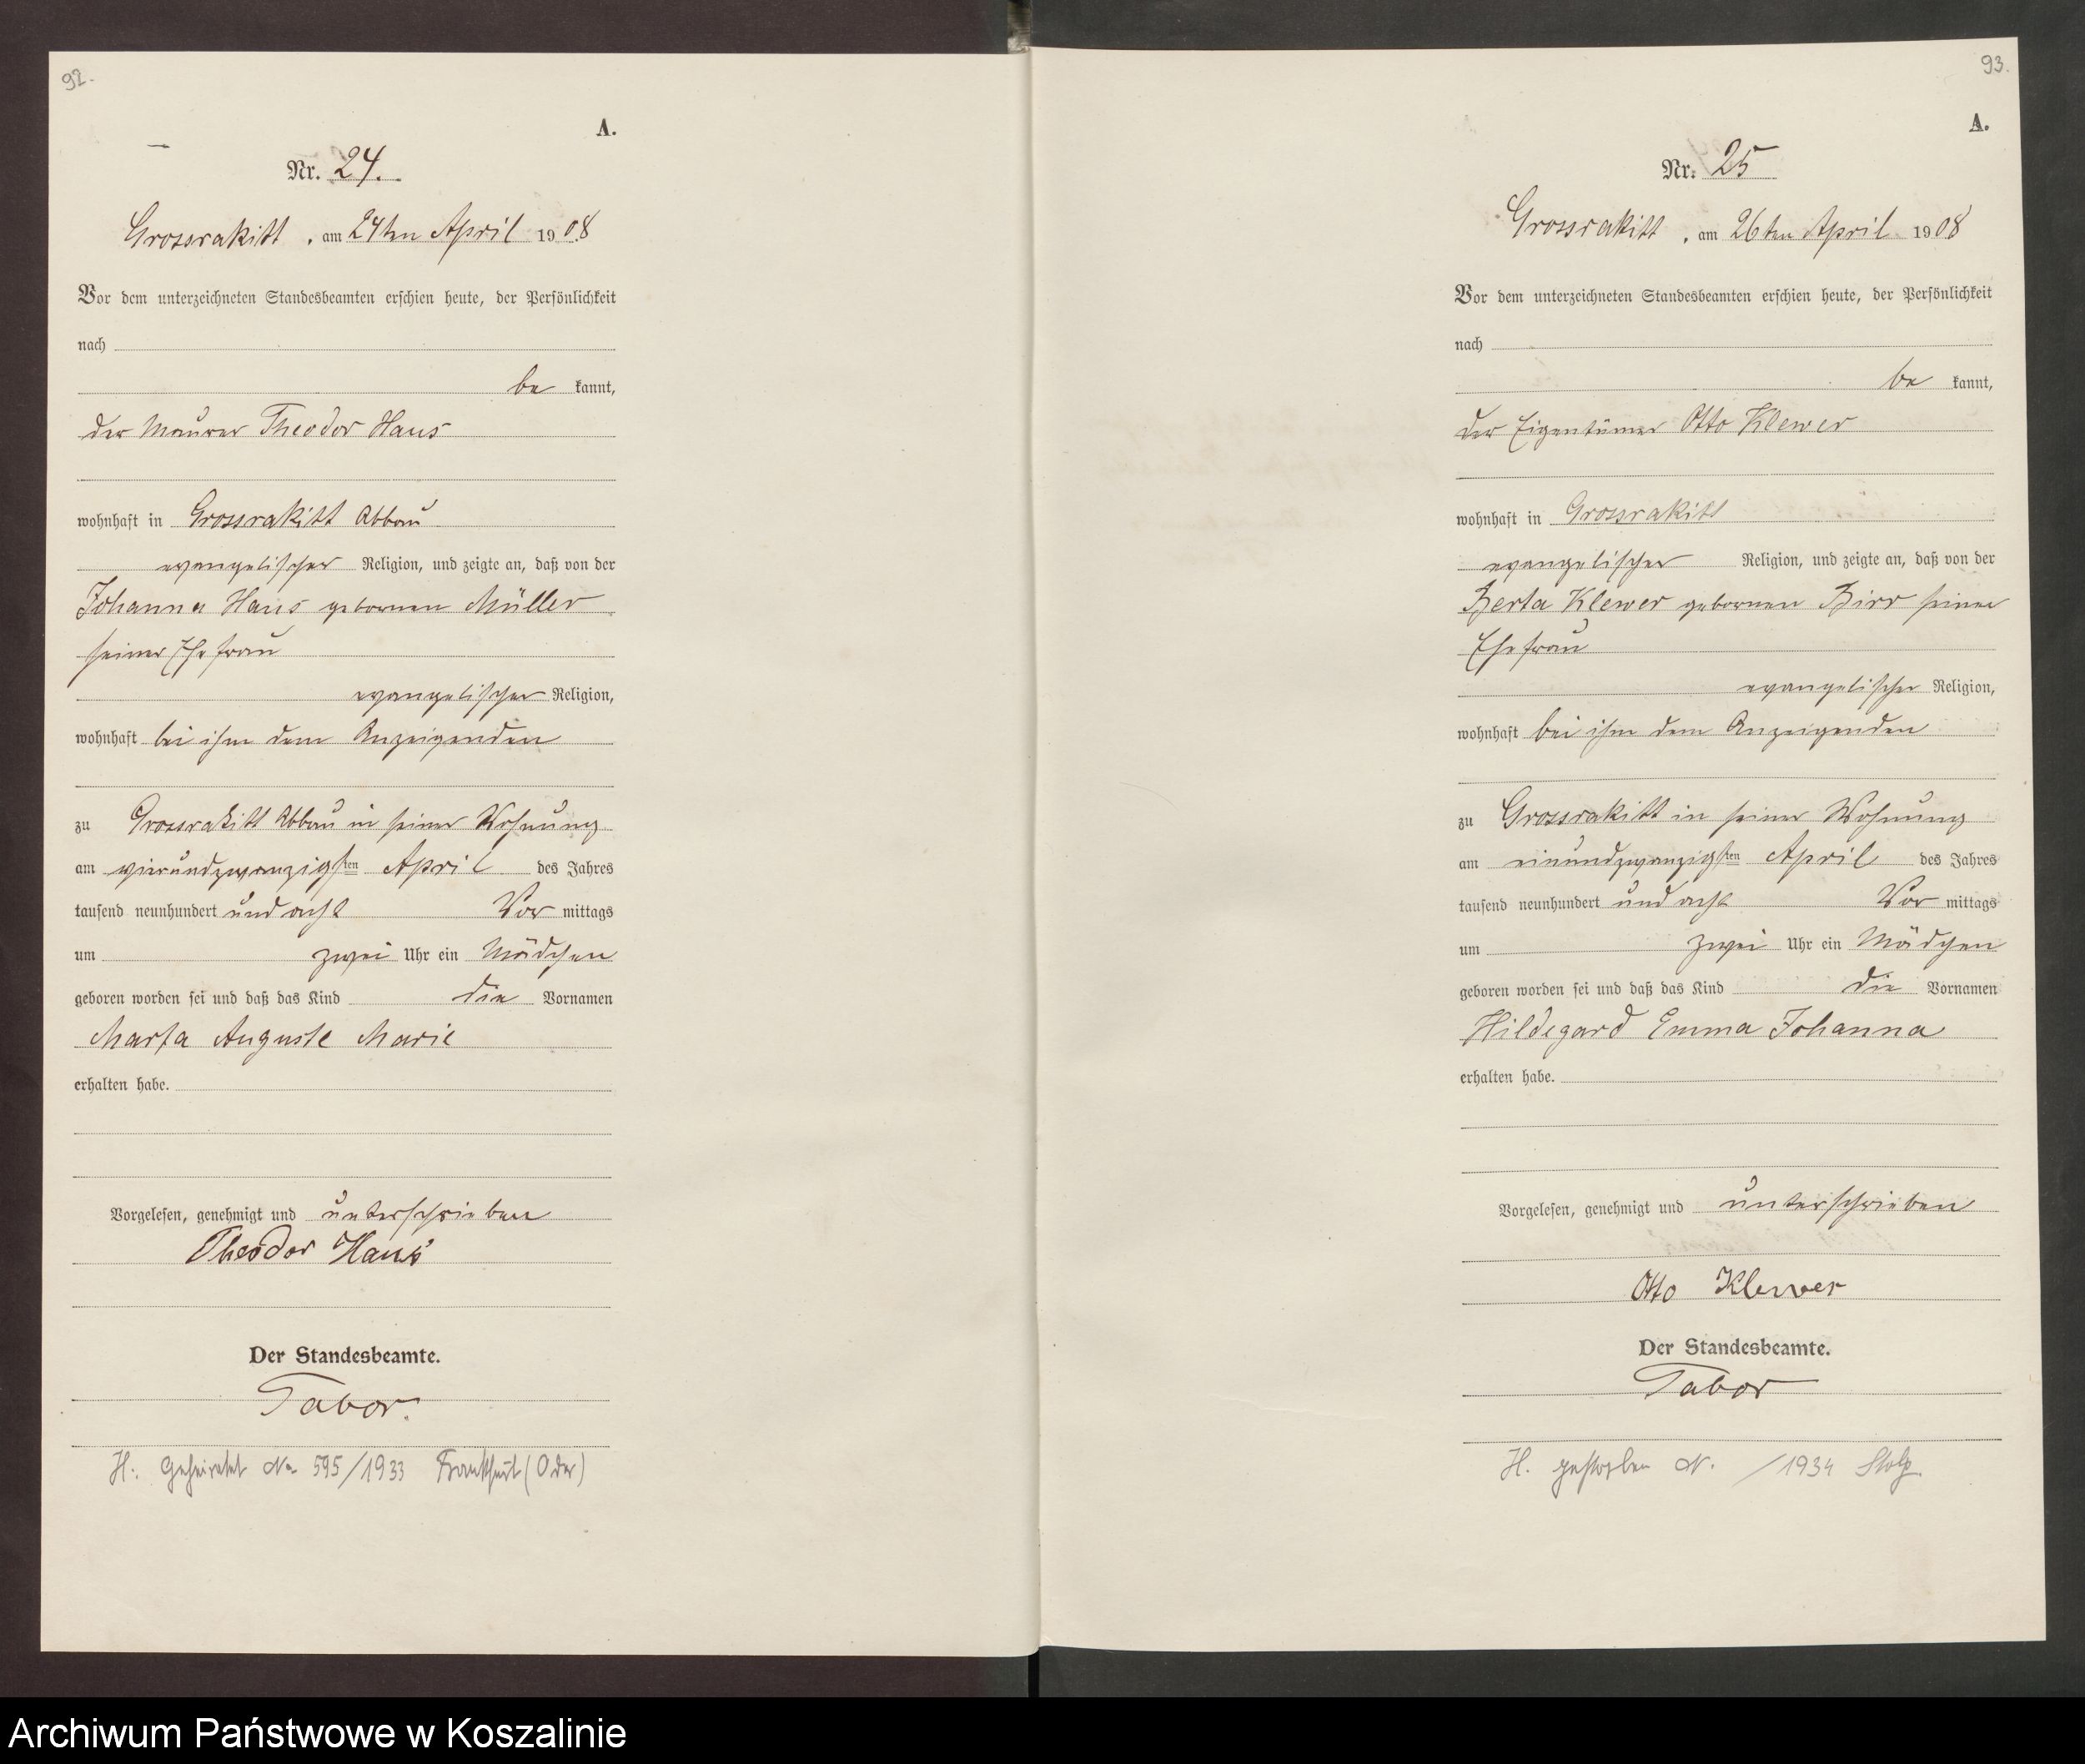 92.
A.
Nr. 24.
Grossrakitt, am 24ten April 1908
Vor dem unterzeichneten Standesbeamten erschien heute, der Persönlichkeit
nach
be kannt,
der Maurer Theodor Haus
wohnhaft in Grossrakitt Abbau
evangelischer Religion, und zeigte an, daß von der
Johanna Haus gebornen Müller
seiner Ehefrau
evangelischer Religion,
wohnhaft bei ihm dem Anzeigenden
zu Grossrakitt Abbau in seiner Wohnung
am vierundzwanzigsten April des Jahres
tausend neunhundert und acht Vor mittags
um zwei Uhr ein Mädchen
geboren worden sei und daß das Kind die Vornamen
Marta Auguste Marie
erhalten habe.
Vorgelesen, genehmigt und unterschrieben
Theodor Haus
Der Standesbeamte.
Tabor.
H.: Geheiratet No 595/1933 Frankfurt (Oder)
93.
A.
Nr. 25
Grossrakitt, am 26ten April 1908
Vor dem unterzeichneten Standesbeamten erschien heute, der Persönlichkeit
nach
be kannt,
der Eigentümer Otto Klewer
wohnhaft in Grossrakitt
evangelischer Religion, und zeigte an, daß von der
Berta Klewer gebornen Birr seiner
Ehefrau
evangelischer Religion,
wohnhaft bei ihm dem Anzeigenden
zu Grossrakitt in seiner Wohnung
am einundzwanzigsten April des Jahres
tausend neunhundert und acht Vor mittags
um zwei Uhr ein Mädchen
geboren worden sei und daß das Kind die Vornamen
Hildegard Emma Johanna
erhalten habe.
Vorgelesen, genehmigt und unterschrieben
Otto Klewer
Der Standesbeamte.
Tabor
H. gestorben N. /1934 Stolp
Archiwum Państwowe w Koszalinie